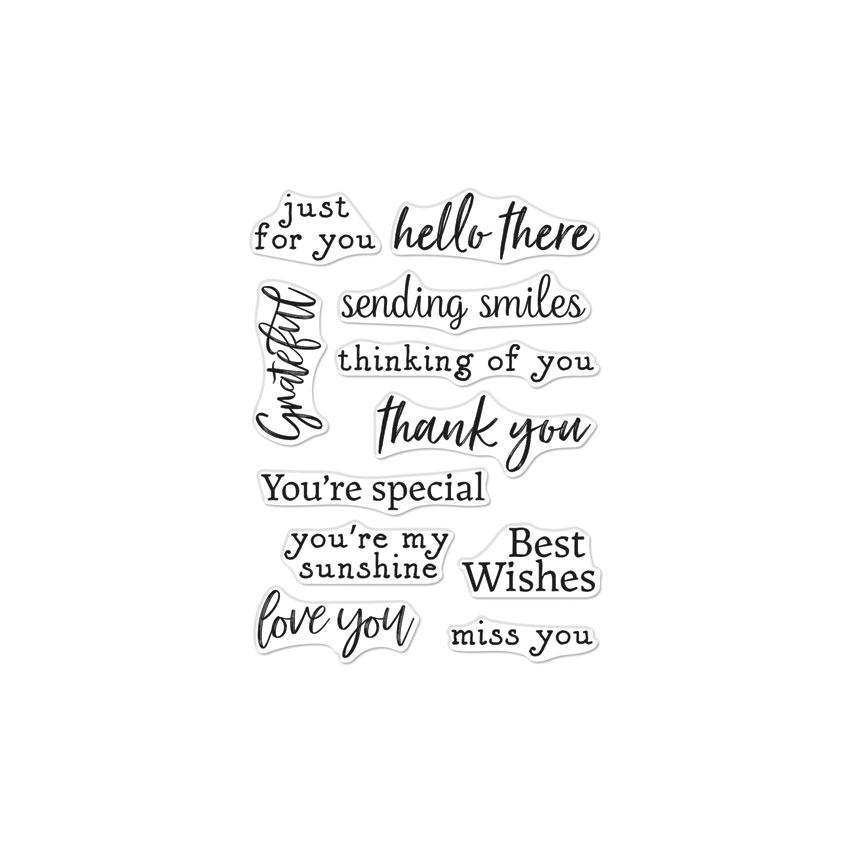 just
for you
hello there
Grateful
sending smiles
thinking of you
thank you
You're special
you're my
sunshine
Best
Wishes
love you
miss you